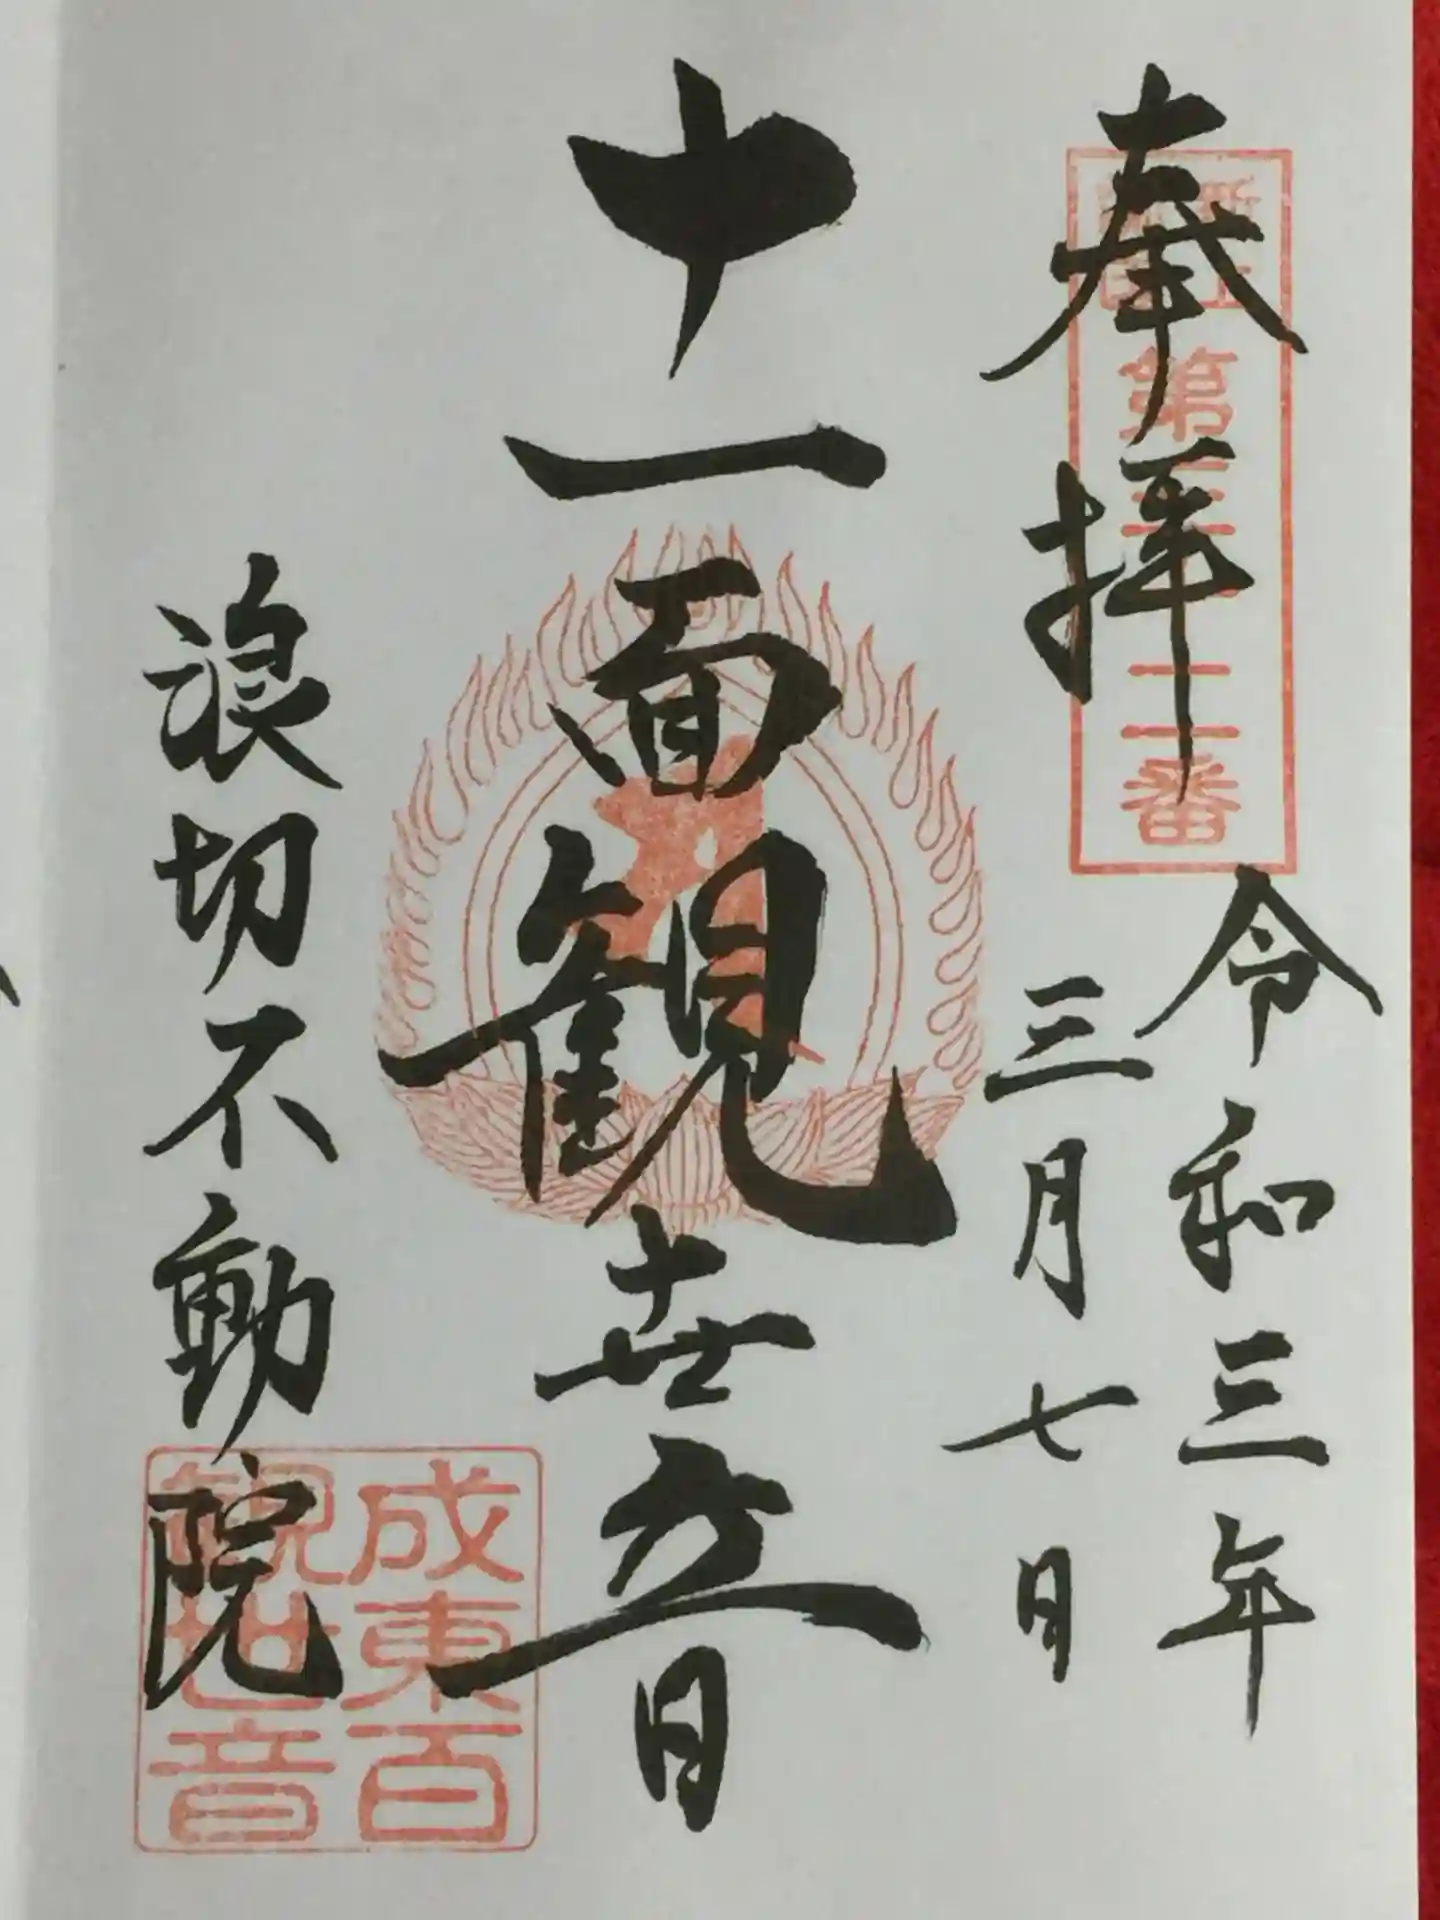 奉拝
令和三年
三月七日
十一面観世音
浪切不動院
成東百
観世音